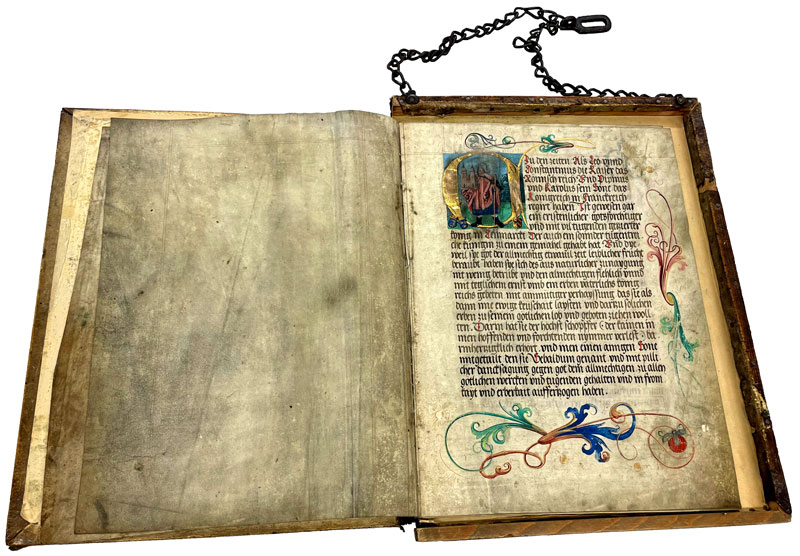 Zu den zeiten Als Leo vnnd
Constantinus die Kaiser das
Romisch reich Vnd Pipinus
vnd Karolus sein Sone das
Konigreich zu Franckreich
regirt haben Ist gewesen gar
ein cristenlicher gotsforchtiger
vnd mit vil tugenden gezierter
konig in Tennmarckt Der auch ein sonnder tugentli
che kunigin zu einem gemahel gehabt hat Vnd dye
weil sye got der allmechtig etwauil zeit leiblicher frucht
beraubt haben sye sich des aus naturlicher zunaygung
nit wenig betrubt vnd den allmechtigen vnnd
mit teglichem ernst vmb ein erben vaterlichs konig
reichs gebeten mit anmutiger verhayssung das sie als
dann ewige keuschait laysten vnd darzu solichen
erben zu seinem gotlichen lob vnd geboten ziehen woll
ten. Darin hat sie der hochst schopffer der kainen in
inen hoffenden vnd forchtenden nymmer verlest ba
rmhertziglich erhort. vnd inen einen ainigen Sone
mitgetailt den sie Sebaldum genant vnd mit pilli
cher dancksagung gegen got dem allmechtigen zu allen
gotlichen wercken vnd tugenden gehalten vnd in from
kayt vnd erberkait aufferzogen haben.